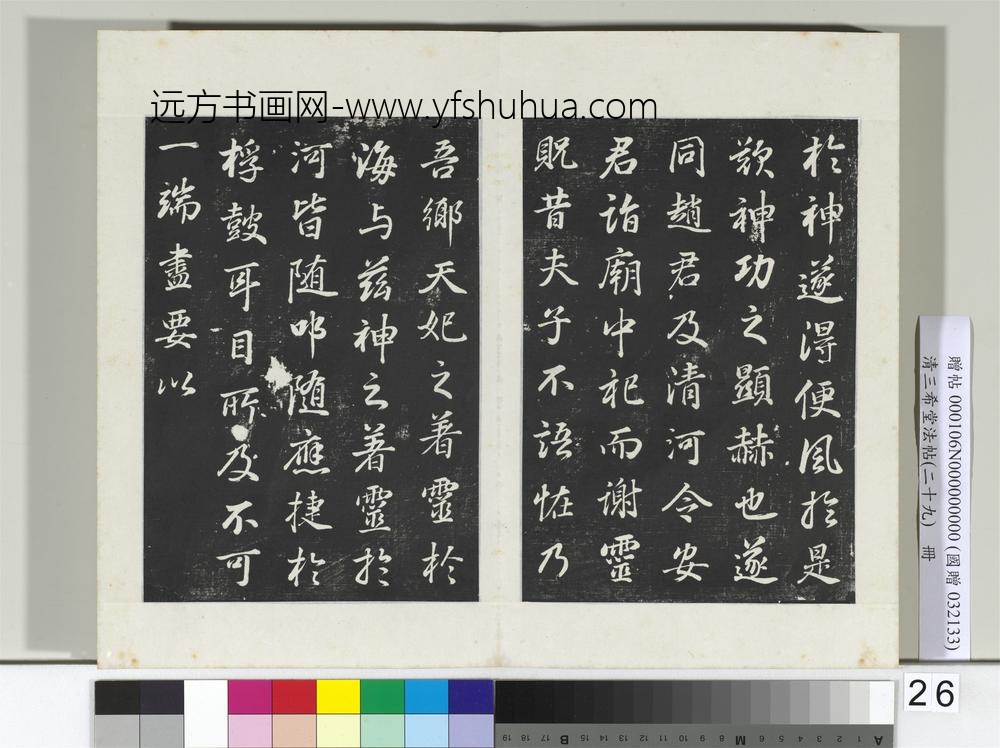 远方书画网-www.yfshuhua.com
於神遂得便风於是
歎神功之顯赫也遂
同趙君及清河令安
君詣廟中祀而谢靈
貺昔夫子不語恠乃
吾鄉天妃之著靈於
海与兹神之著靈於
河皆随叩随應捷於
桴鼓耳目所及不可
一端盡要以
贈帖 000106N000000000 (國贈 032133)
清三希堂法帖(二十九) 冊
26